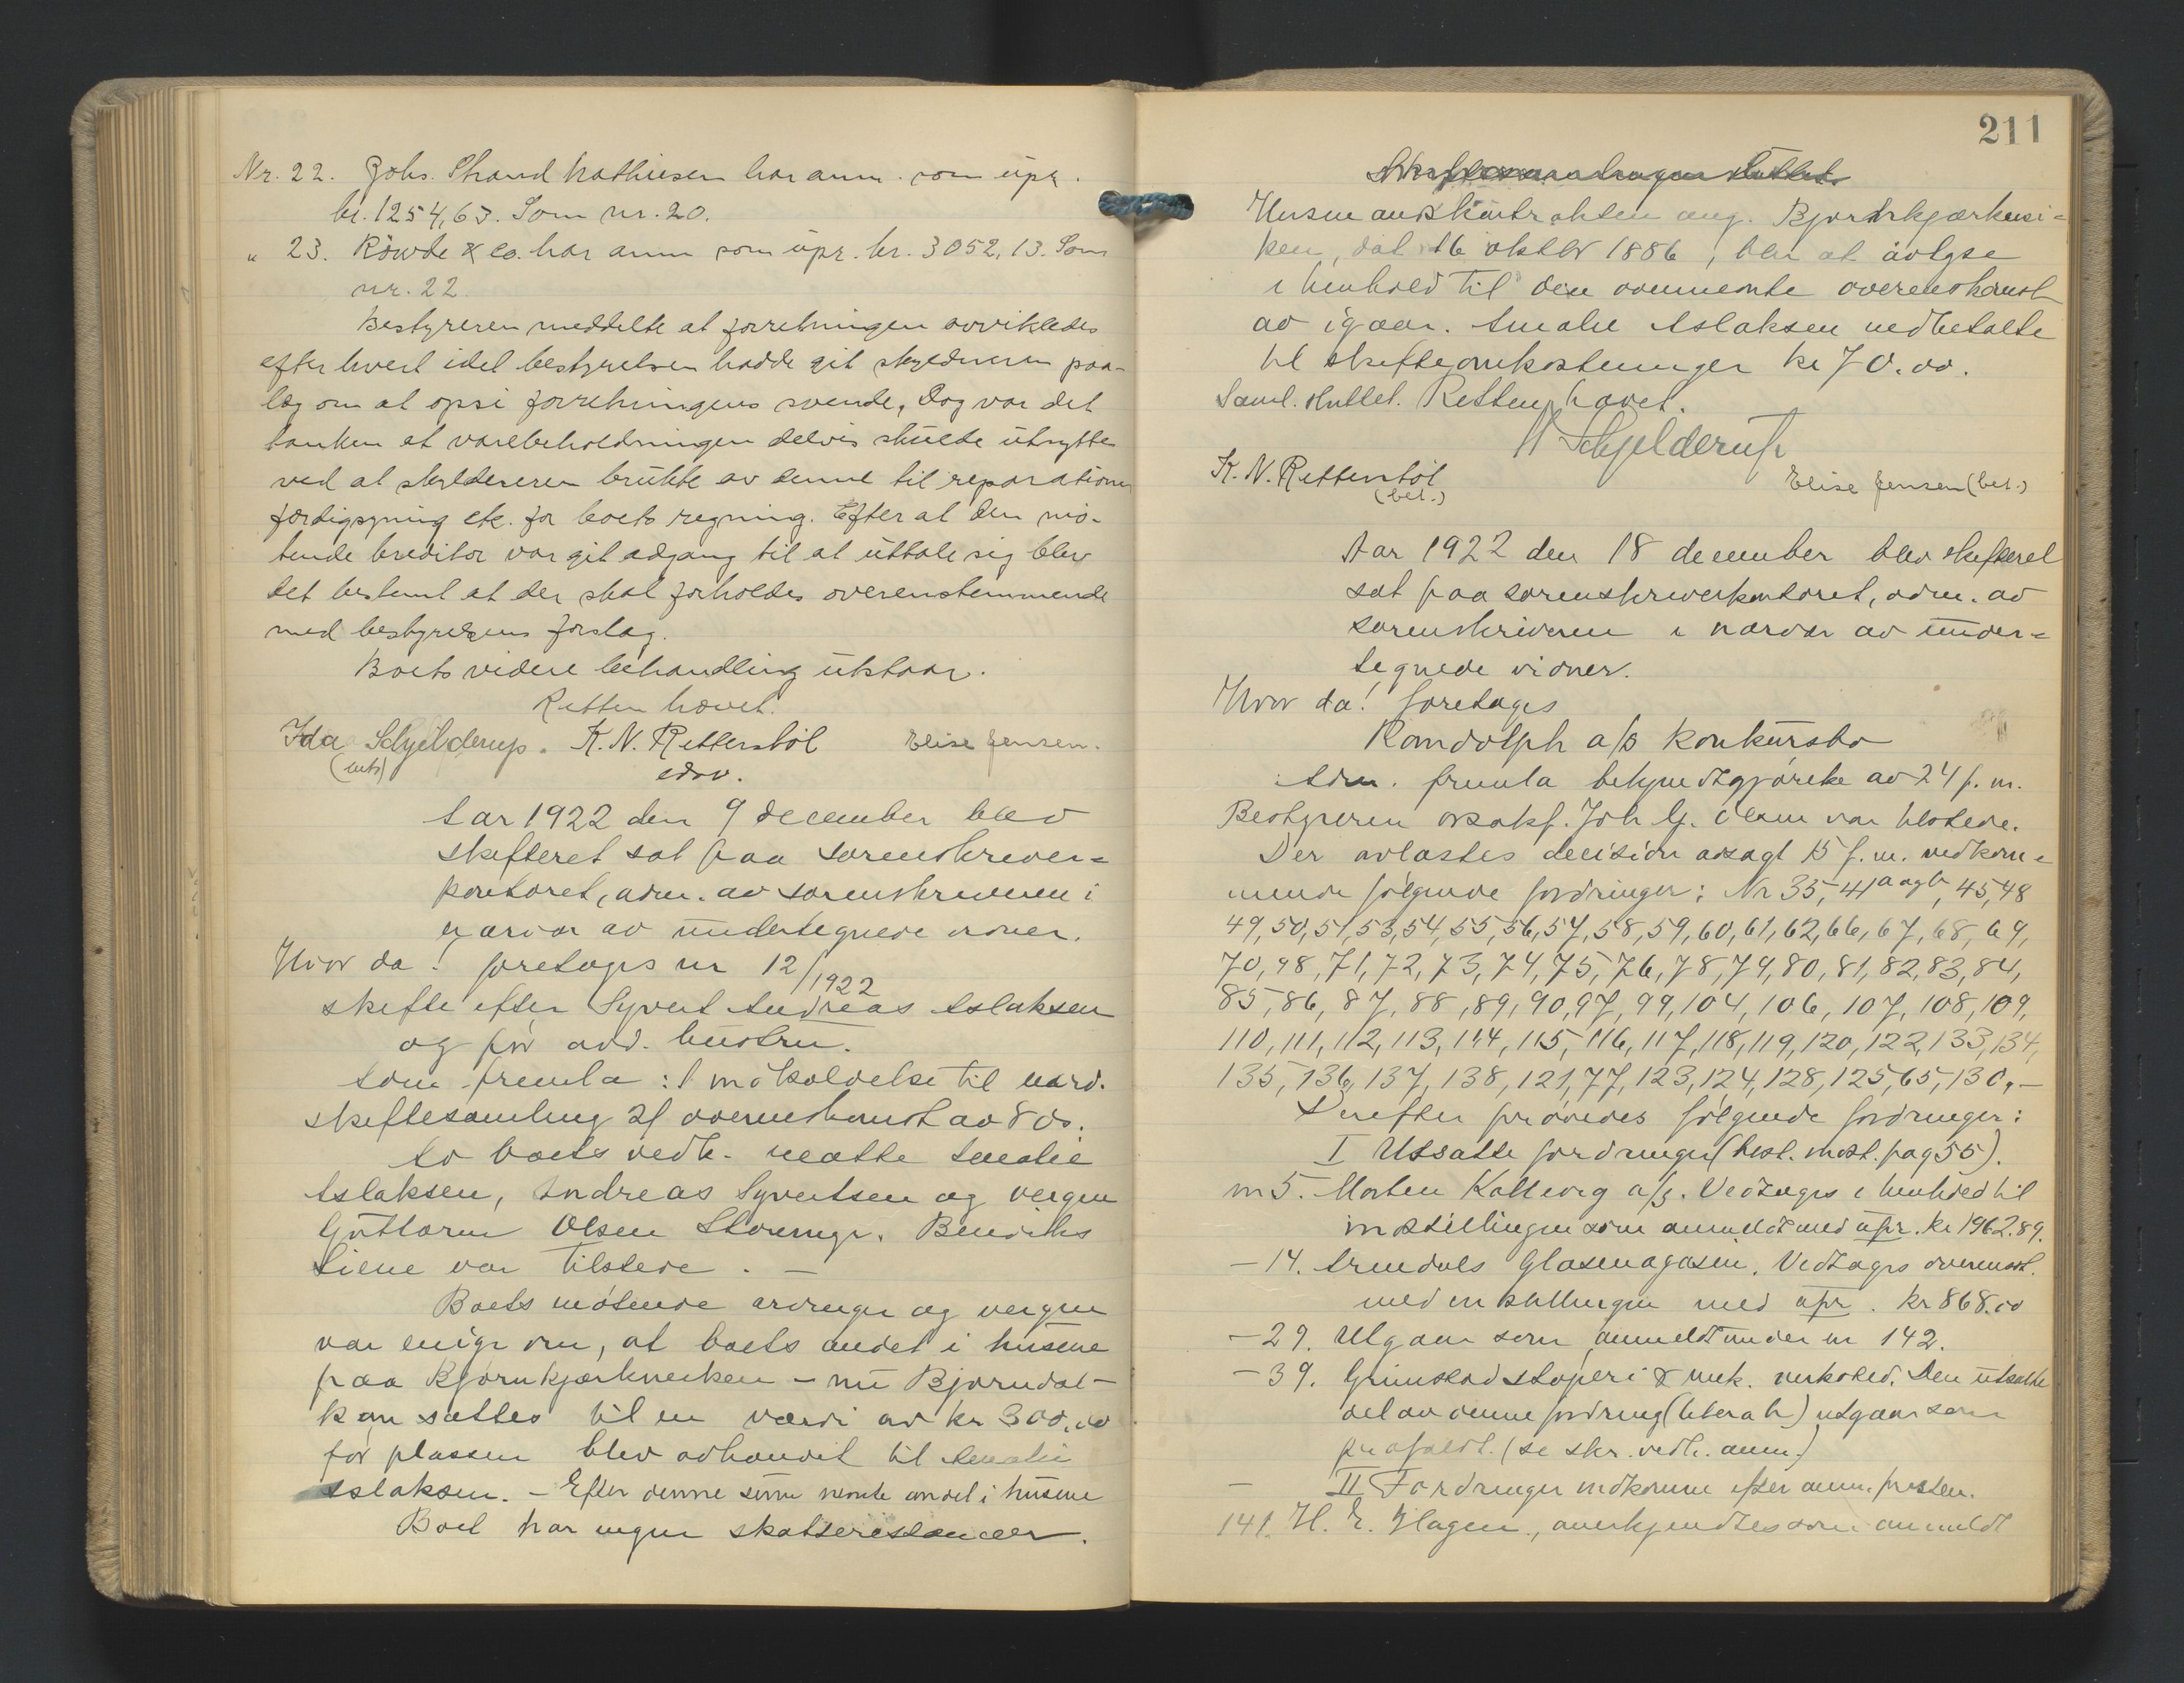 Nr. 22. Johs. Strand Mathiesen har anm. som upr.
kr. 1254,63. Som nr. 20.
" 23. Röwde & co. har anm som upr. kr. 3052,13. Som
nr. 22
Bestyreren meddelte at forretningen avvikledes
efter hvert idet bestyrelsen hadde git skyldneren paa-
læg om at opsi forretningens svende, Dog var det
tanken at varebeholdningen delvis skulde utnyttes
ved at skyldneren brukte av denne til reparationer
færdigsyning etc. for boets regning. Efter at den mö-
tende kreditor var git adgang til at uttale sig blev
det bestemt at der skal forholdes overensstemmende
med bestyrerens forslag.
Boets videre behandling utstaar.
Retten hævet.
Ida Schjelderup. K.N. Retterstöl Elise Jensen.
edsv.
Aar 1922 den 9 december blev
skifteret sat paa sorenskriver-
kontoret, adm. av sorenskriveren i
nærvær av undertegnede vidner.
Hvor da! foretages nr 12/1922
skifte efter Syvert Andreas Aslaksen
og før avd. hustru.
som fremla: Imøkaldelse til nærv.
skiftesamling 2) overenskomst av 8 ds.
Av boets vedk. møtte Amalie
Aslaksen, Andreas Syvertsen og vergen
Guttorm Olsen Storemyr. Bendiks
Liene var tilstede. —
Boets møtende arvinger og vergen
var enige om, at boets andel i husene
paa Bjørnkjærkneiken – nu Bjørndal –
kan sættes til en værdi av kr 300.00
for plassen blev avhændet til Amalie
Aslaksen. – Efter denne sum nemte andel i husene
Boet har ingen skatterestancer.
211
Husmandskontrakten ang. Bjørnkjærknei-
ken, dat 16 oktbr 1886, blir at avlyse
i henhold til den ovennemte overenskomst
av igaar. Amalie Aslaksen nedbetalte
til skifteomkostninger kr 70.00.
Saml. sluttet. Retten hævet.
Schjelderup
K.N. Retterstöl Elise Jensen (bet.)
(bet.)
Aar 1922 den 18 december blev skifteret
sat paa sorenskriverkontoret, adm. av
sorenskriveren i nærvær av under-
tegnede vidner.
Hvor da! foretages
Randolph a/s konkursbo
Adm. fremla bekjendtgjørelse av 24 f. m.
Bestyreren o.r.sakf. Joh. G. Olsen var tilstede.
Der avlæstes decision avsagt 15 f. m. vedkom-
mende følgende fordringer: Nr 35, 41 a og b, 45, 48
49, 50, 51, 53, 54, 55, 56, 57, 58, 59, 60, 61, 62, 66, 67, 68, 69,
70, 98, 71, 72, 73, 74, 75, 76, 78, 79, 80, 81, 82, 83, 84,
85, 86, 87, 88, 89, 90, 97, 99, 104, 106, 107, 108, 109,
110, 111, 112, 113, 114, 115, 116, 117, 118, 119, 120, 122, 133, 134,
135, 136, 137, 138, 121, 77, 123, 124, 128, 125, 65, 130. —
Derefter prøvedes følgende fordringer:
I Utsatte fordringer (best. inst. pag 55).
nr 5. Morten Kallevig a/s. Vedtages i henhold til
instillingen som anmeldt med upr. kr 1962.89.
– 14. Arendals Glasmagasin. Vedtages overensst.
med instillingen med upr. kr 868.00
– 29. Utgaar som anmeldt under nr 142.
– 39. Grimstad støperi & mek. verksted. Den utsatte
del av denne fordring (litera b) utgaar som
frafaldt. (se skr. vedk. anm.)
– II Fordringer indkomne efter anm. fristen.
141. H. E. Hagen, anerkjendtes som anmeldt